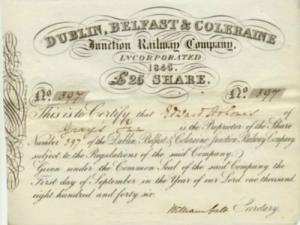 DUBLIN, BELFAST & COLERAINE
Junction Railway Company,
INCORPORATED
1846.
£25 SHARE.
No. 397 No. 397
This is to Certify that of
is the Proprietor of the Share
Number 397 of the Dublin Belfast & Coleraine Junction Railway Company
subject to the Regulations of the said Company.
Given under the Common Seal of the said Company the
First day of September in the Year of our Lord one thousand
eight hundred and forty six.
William Secretary.